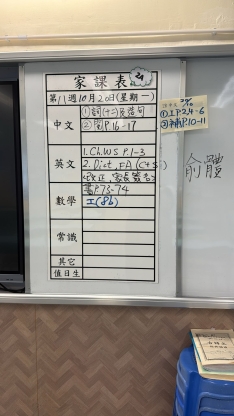 家課表 24
第11週10月20日(星期一)
中文
①詞(十三)及造句
②閱P.16-17
英文
1. Ch.WS P.1-3
2. Dict, FA (C+S)
改正, 家長簽名
數學
書P.73-74
工(8b)
常識
其它
值日生
20/10
①工P.2,4-6
②補P.10-11
俞體